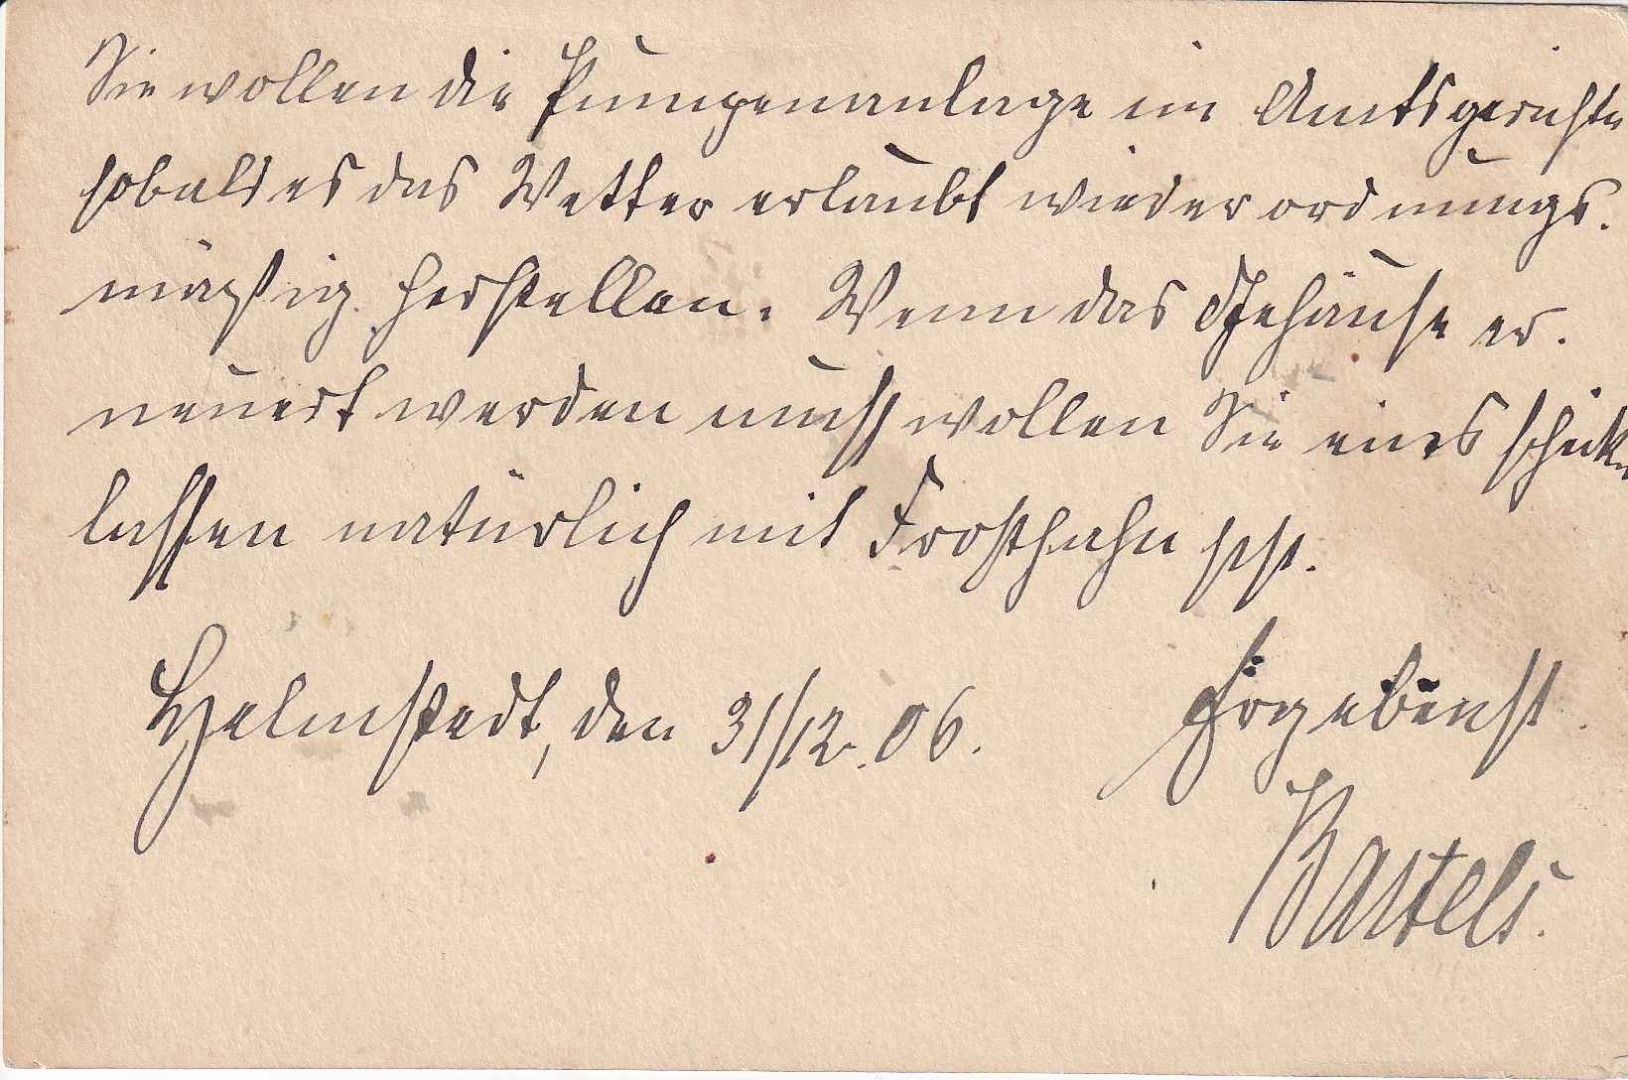 Sie wollen die Pumpenanlage im Amtsgerichte
sobald es das Wetter erlaubt wieder ordnungs-
mäßig herstellen. Wenn das Gehäuse er-
neuert werden muß wollen Sie eines schicken
lassen natürlich mit Frosthahn
Helmstedt, den 31/12. 06.
Ergebenst
Bartels.